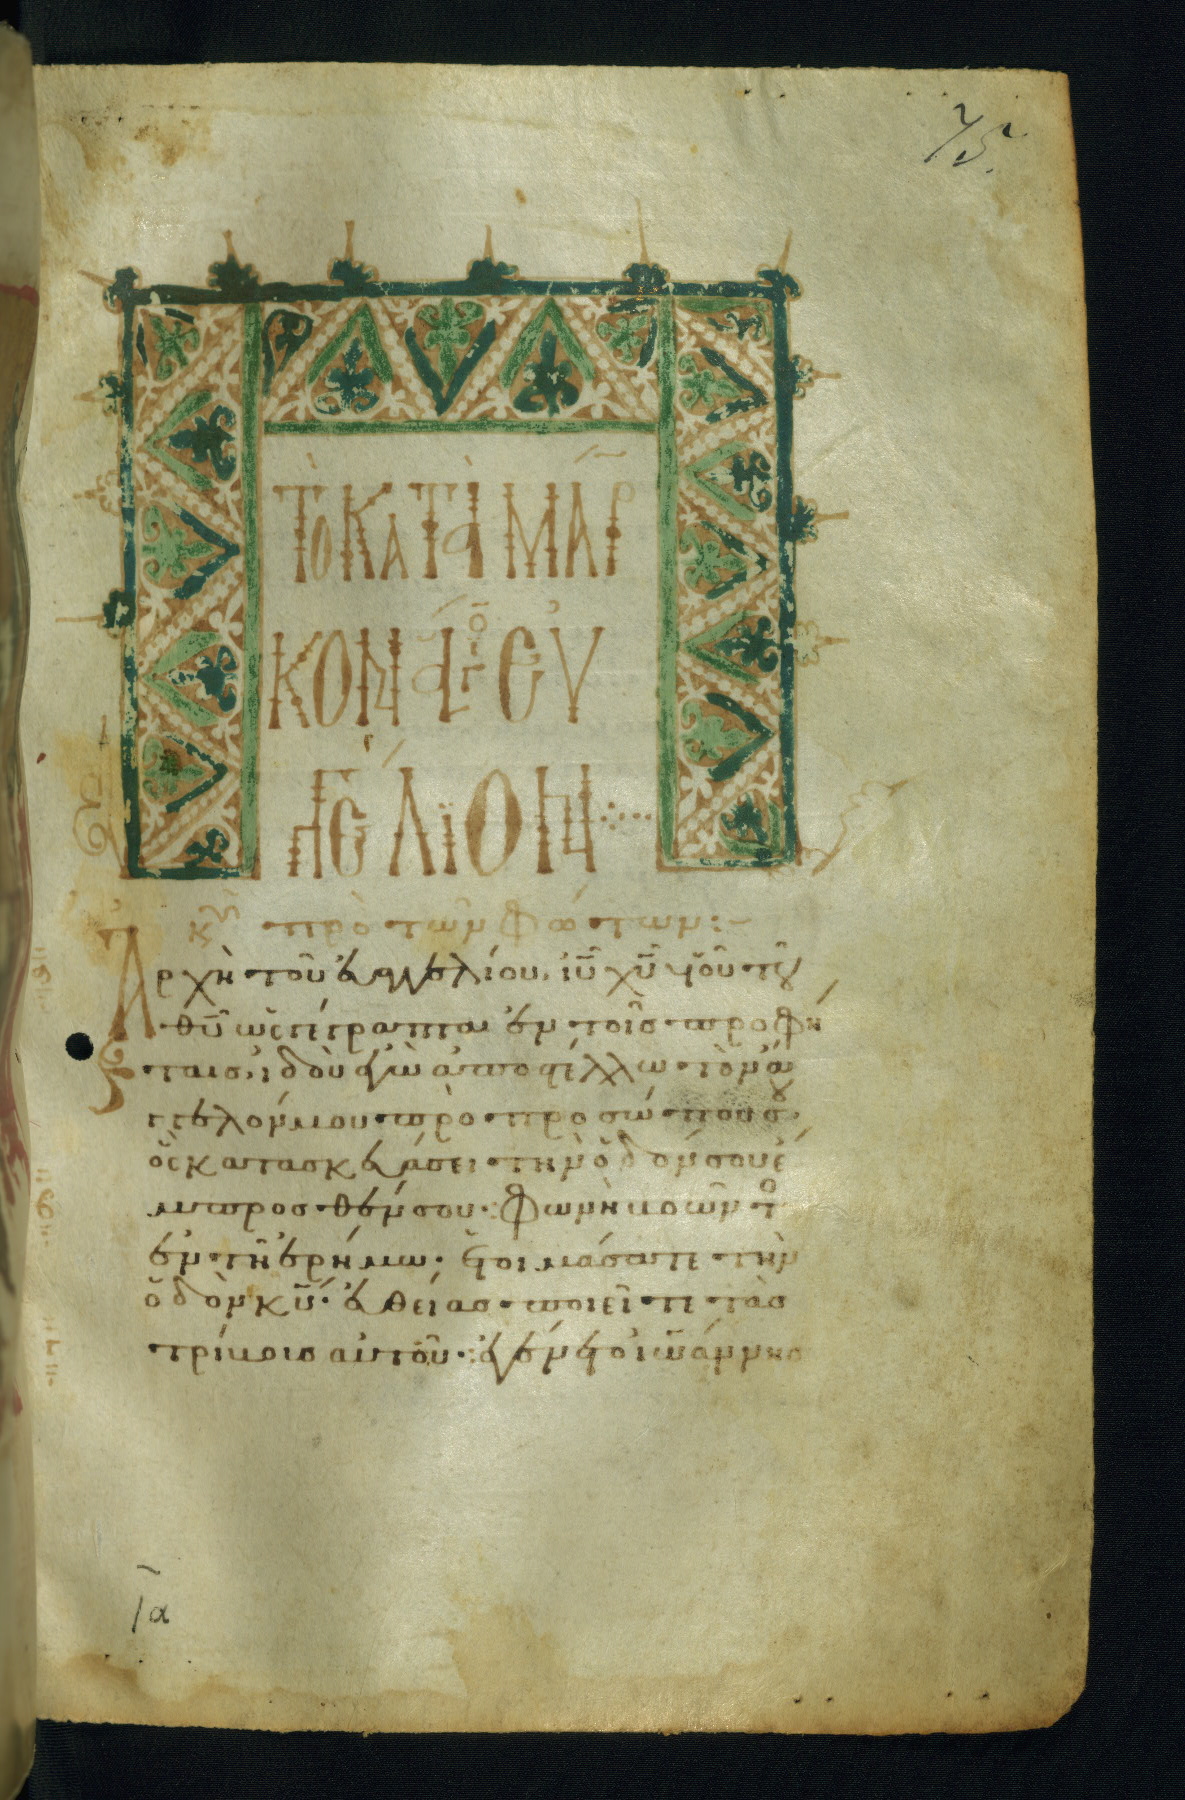 75.
Τὸ κατὰ Μάρ
κον ἅγιον εὐ
γγέλιον
κυ πρὸ τῶν φώτων:-
Ἀρχὴ τοῦ εὐαγγελίου ιυ χυ υἱοῦ τοῦ
θυ ὡς γέγραπται ἐν τοῖς προφή
ταις, ἰδοὺ ἐγὼ ἀποστέλλω τὸν ἄγ
γελόν μου πρὸ προσώπου σου,
ὃς κατασκευάσει τὴν ὁδόν σου ἔμ
προσθέν σου· Φωνὴ βοῶντο
ἐν τῇ ἐρήμω· ἑτοιμάσατε τὴν
ὁδὸν κυ· εὐθείας ποιεῖτε τὰς
τρίβους αὐτοῦ· ἐγένετο ἰωάννης
ια